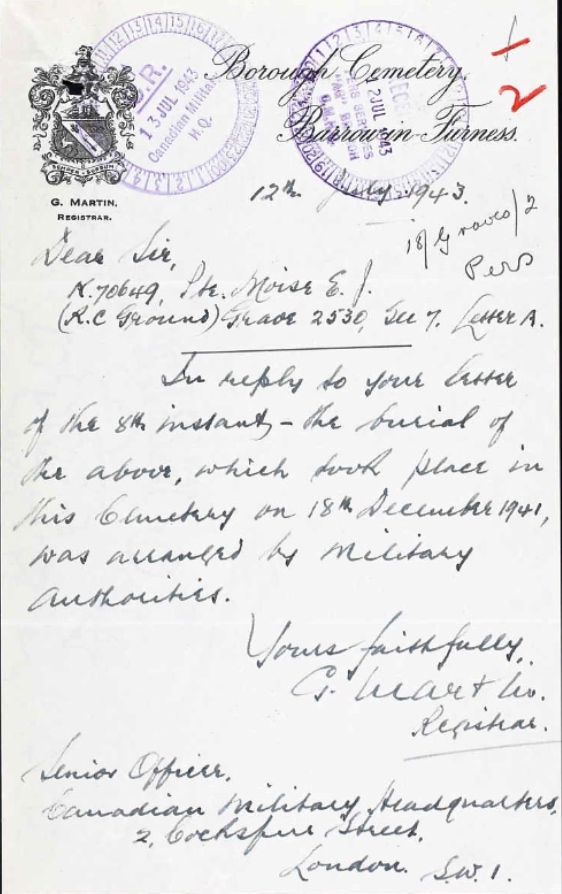 Borough Cemetery,
Barrow-in-Furness.
C.R.
13 JUL 1943
Canadian Military
H.Q.
2 JUL 1943
1
2
SEMPER SURSUM
G. MARTIN,
REGISTRAR.
12th July, 1943.
18/Graves/2
Pers
Dear Sir,
K.70649, Pte. Moise E. J.
(R.C Ground) Grave 2530, Sec 7. Letter A.
In reply to your letter
of the 8th instant, - the burial of
the above, which took place in
this Cemetery on 18th December 1941,
was arranged by Military
Authorities.
Yours faithfully,
G. Martin.
Registrar.
Senior Officer,
Canadian Military Headquarters,
2, Cockspur Street,
London. S.W.1.